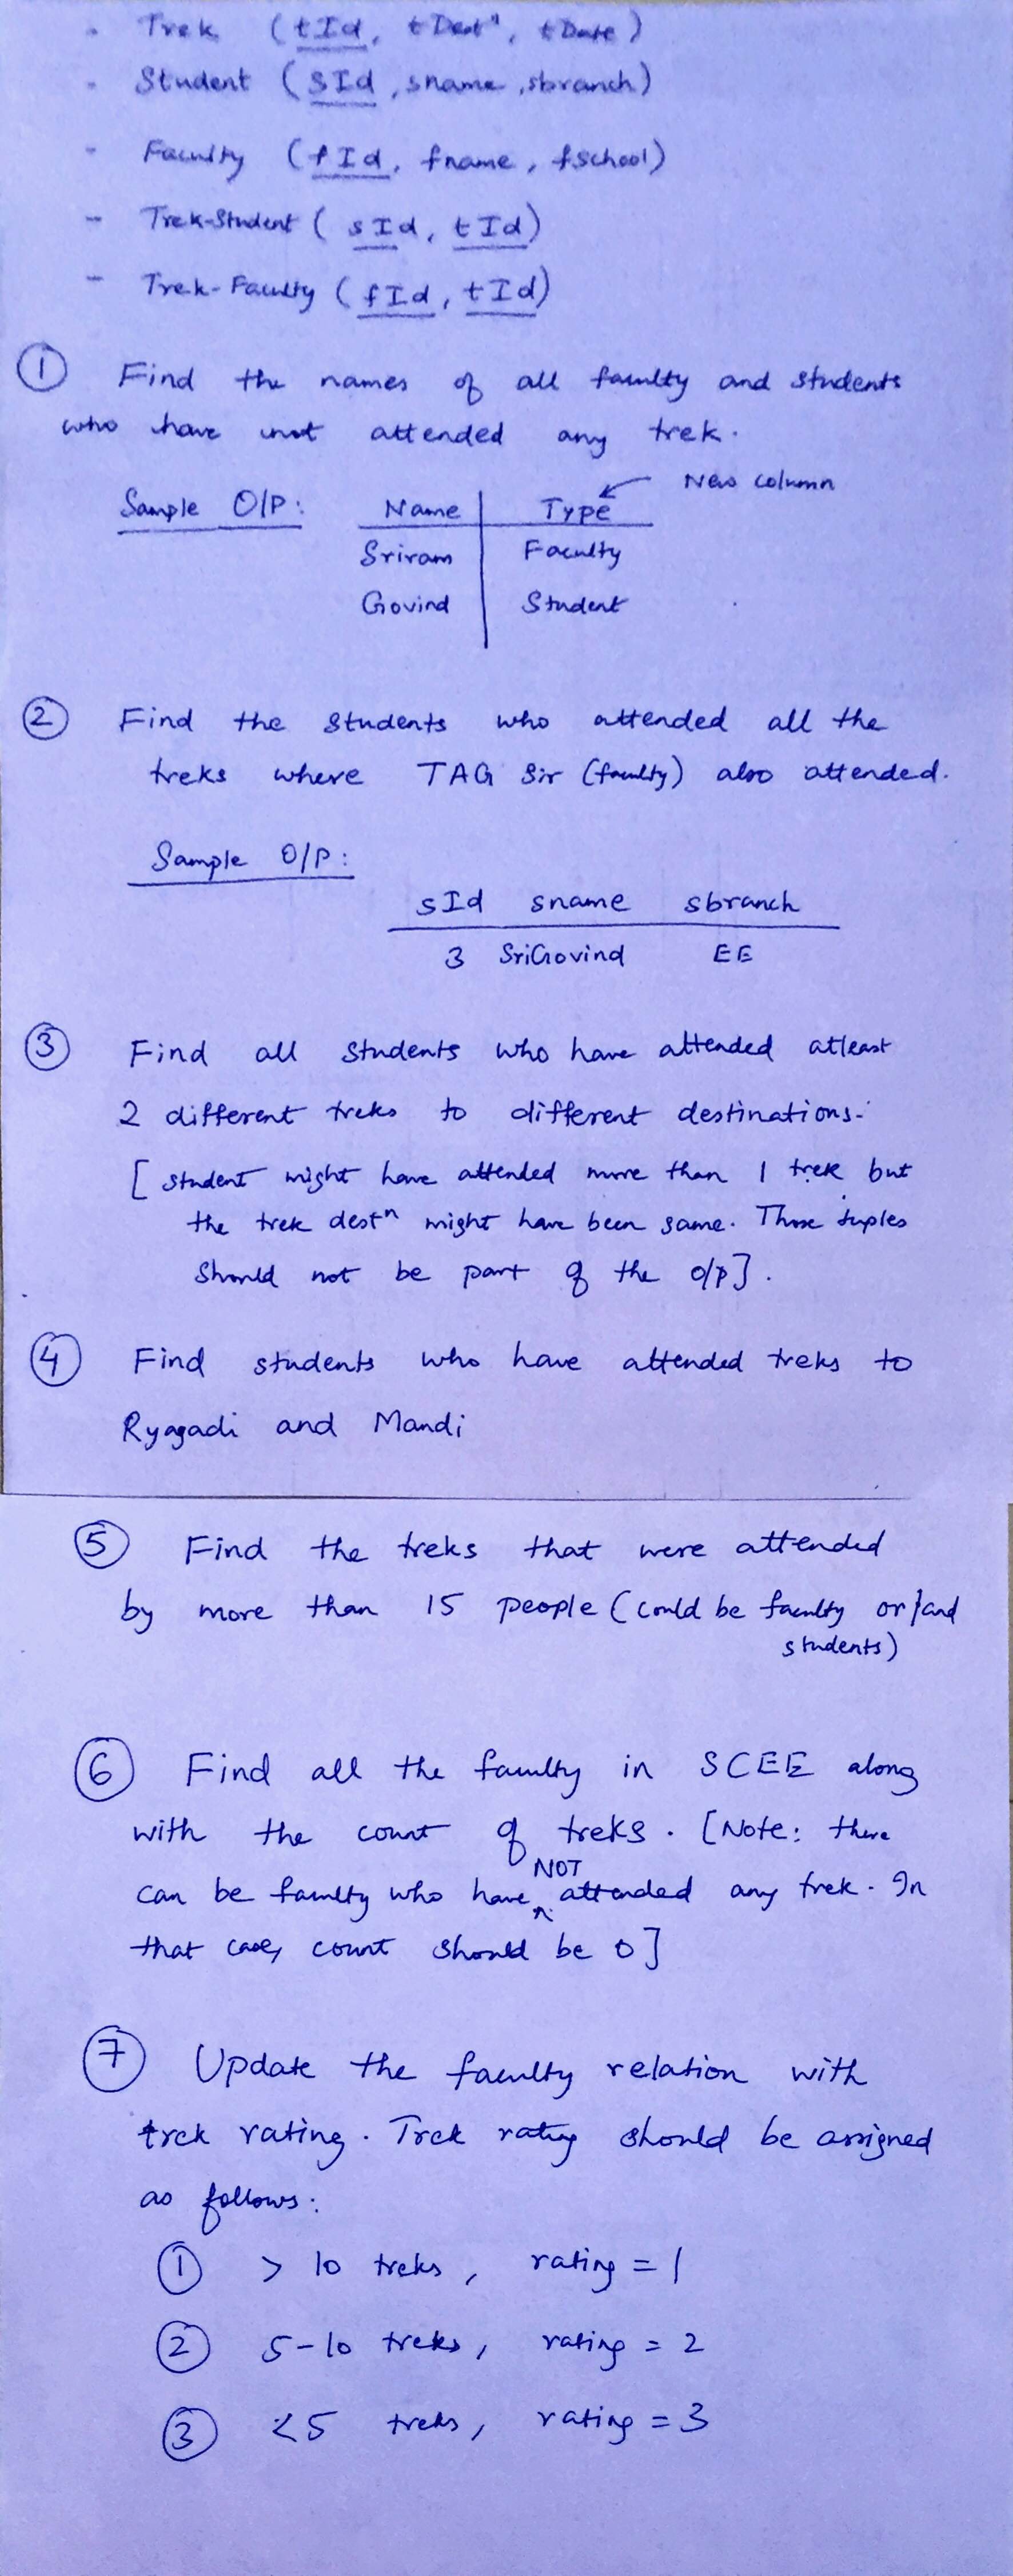 - Trek (tId, tDestⁿ, tDate)
- Student (SId, sname, sbranch)
- Faculty (fId, fname, fschool)
- Trek-Student (sId, tId)
- Trek-Faculty (fId, tId)
① Find the names of all faculty and students
who have not attended any trek.
New column
Sample O/P: Name Type
Sriram Faculty
Govind Student
② Find the students who attended all the
treks where TAG Sir (faculty) also attended.
Sample O/P:
sId sname sbranch
3 SriGovind EE
③ Find all students who have attended atleast
2 different treks to different destinations.
[student might have attended more than 1 trek but
the trek destⁿ might have been same. Those tuples
should not be part of the o/p].
④ Find students who have attended treks to
Ryagadi and Mandi
⑤ Find the treks that were attended
by more than 15 people (could be faculty or/and
students)
⑥ Find all the faculty in SCEE along
with the count of treks. [Note: there
can be faculty who have NOT attended any trek. In
that case, count should be 0]
⑦ Update the faculty relation with
trek rating. Trek rating should be assigned
as follows:
① > 10 treks, rating = 1
② 5-10 treks, rating = 2
③ <5 treks, rating = 3